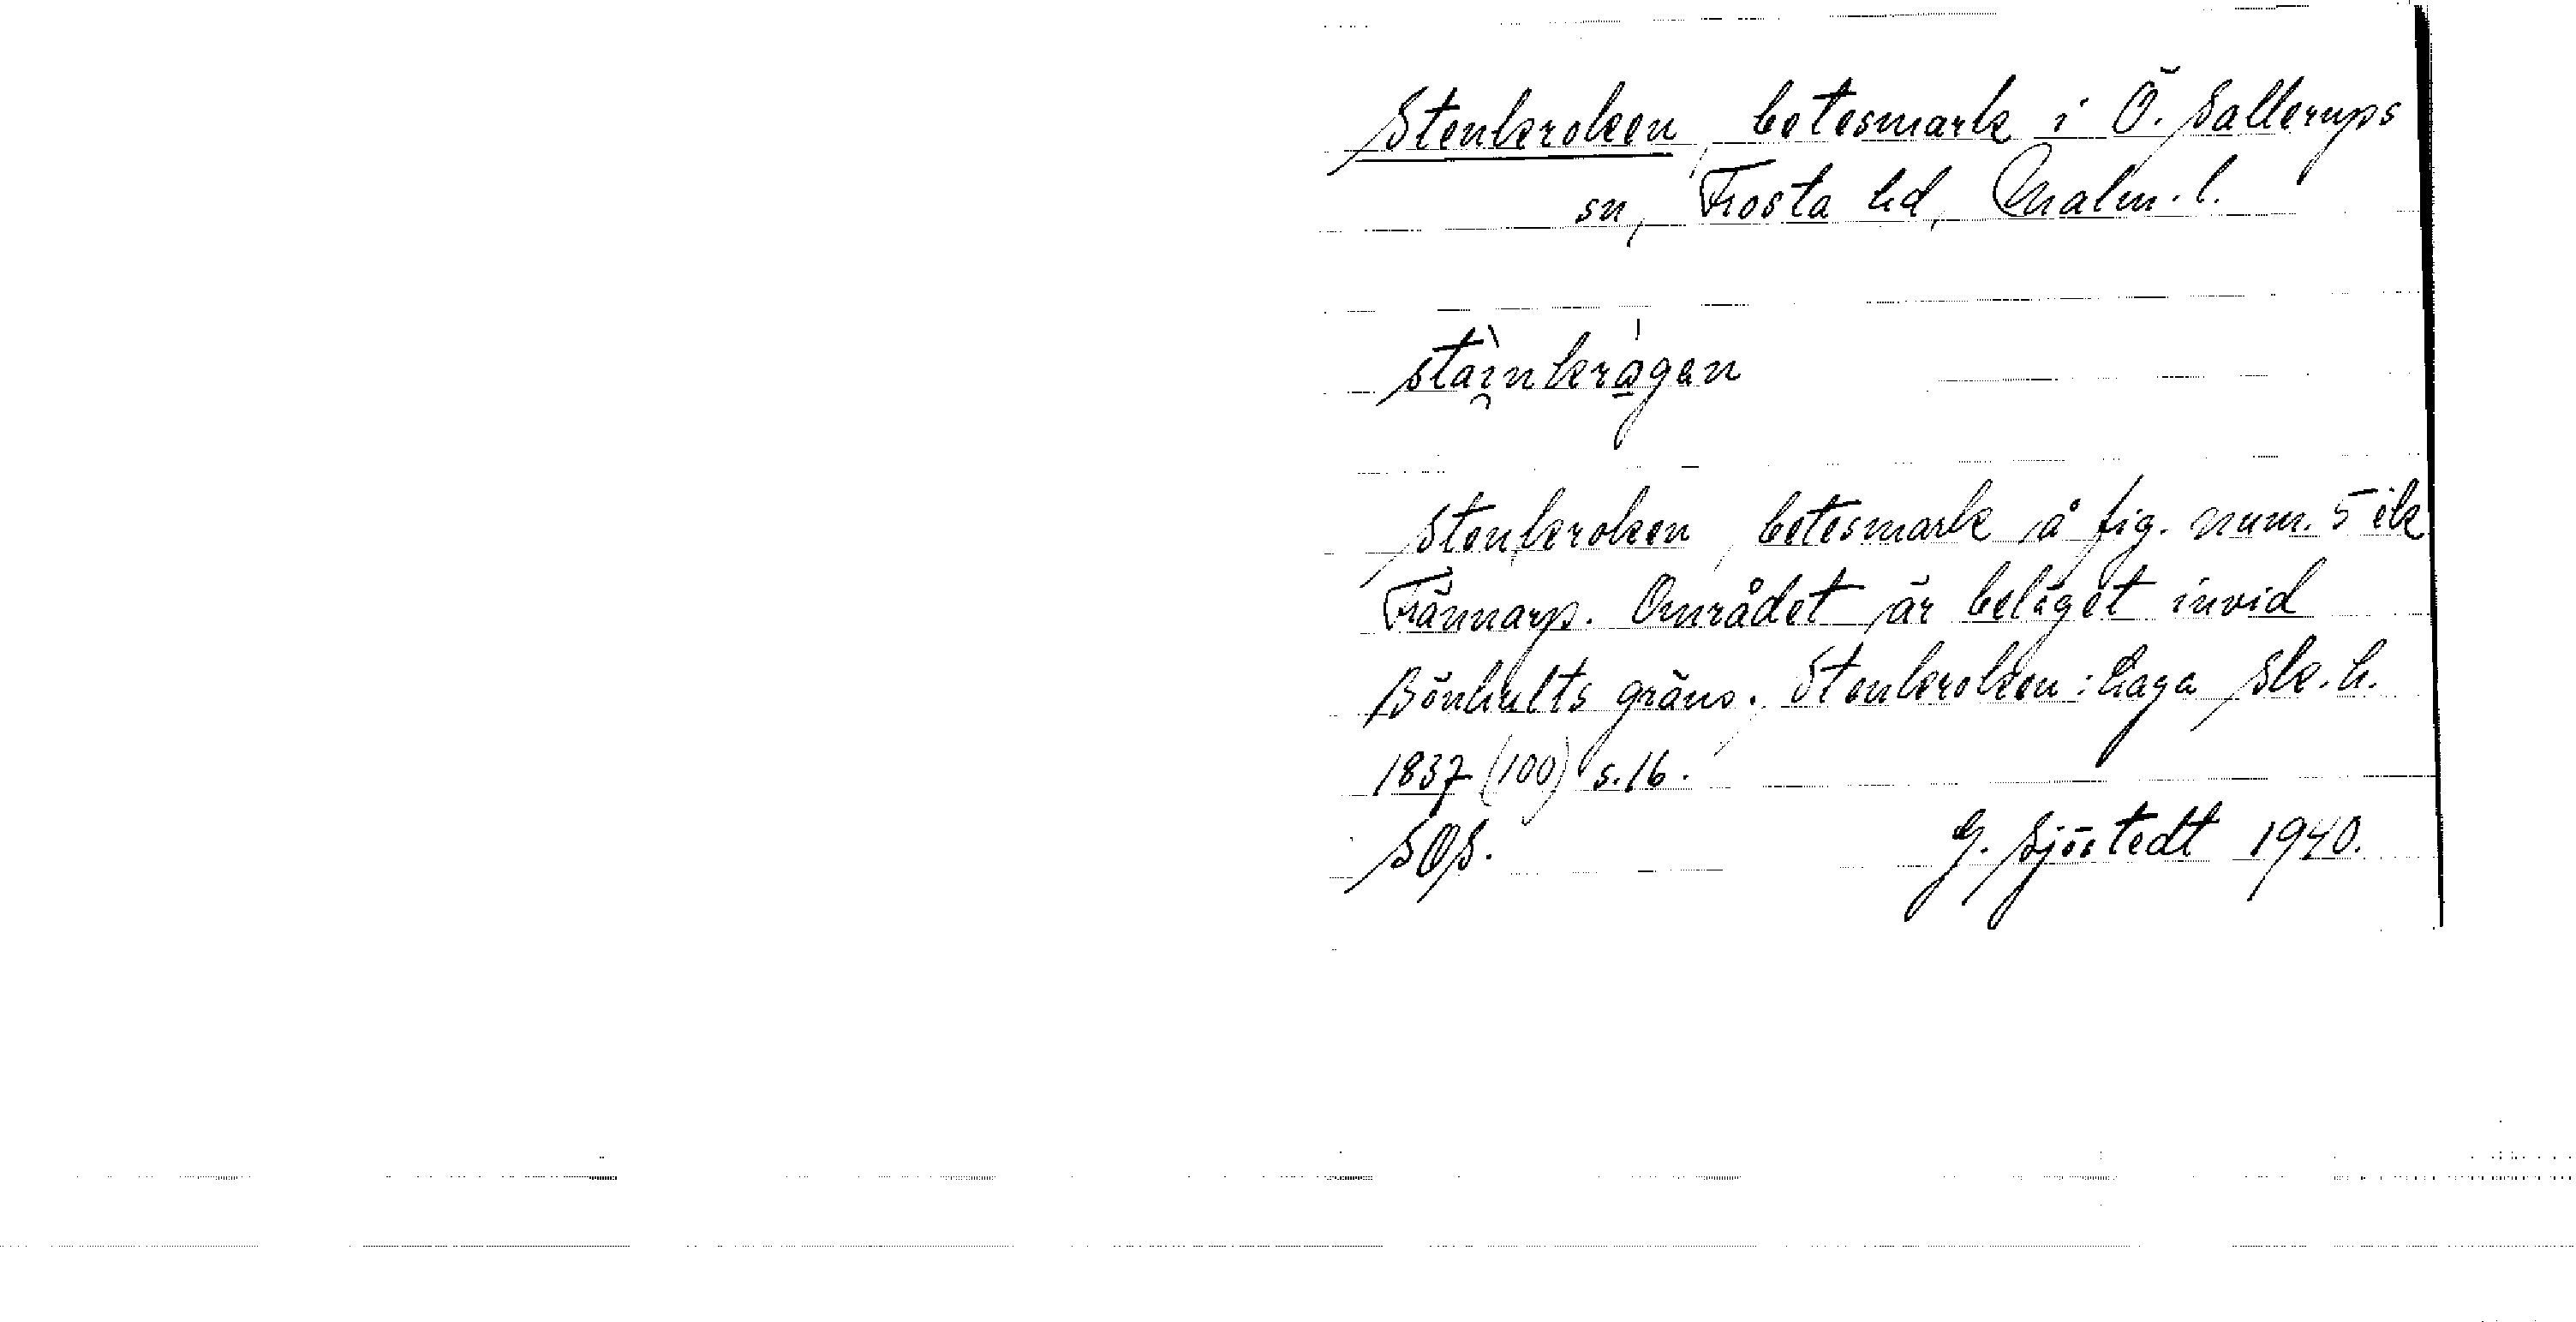 Stenkroken, betesmark i Ö. Sallerups
sn, Frosta hd, Malm. l.
staìnkrågan
Stenkroken, betesmark å fig. num. 5 ik
Frännarp. Området är beläget invid
Bönhults gräns. Stenkroken: Laga Sk. h.
1837 (100) s. 16.
SOS.
G. Sjöstedt 1940.